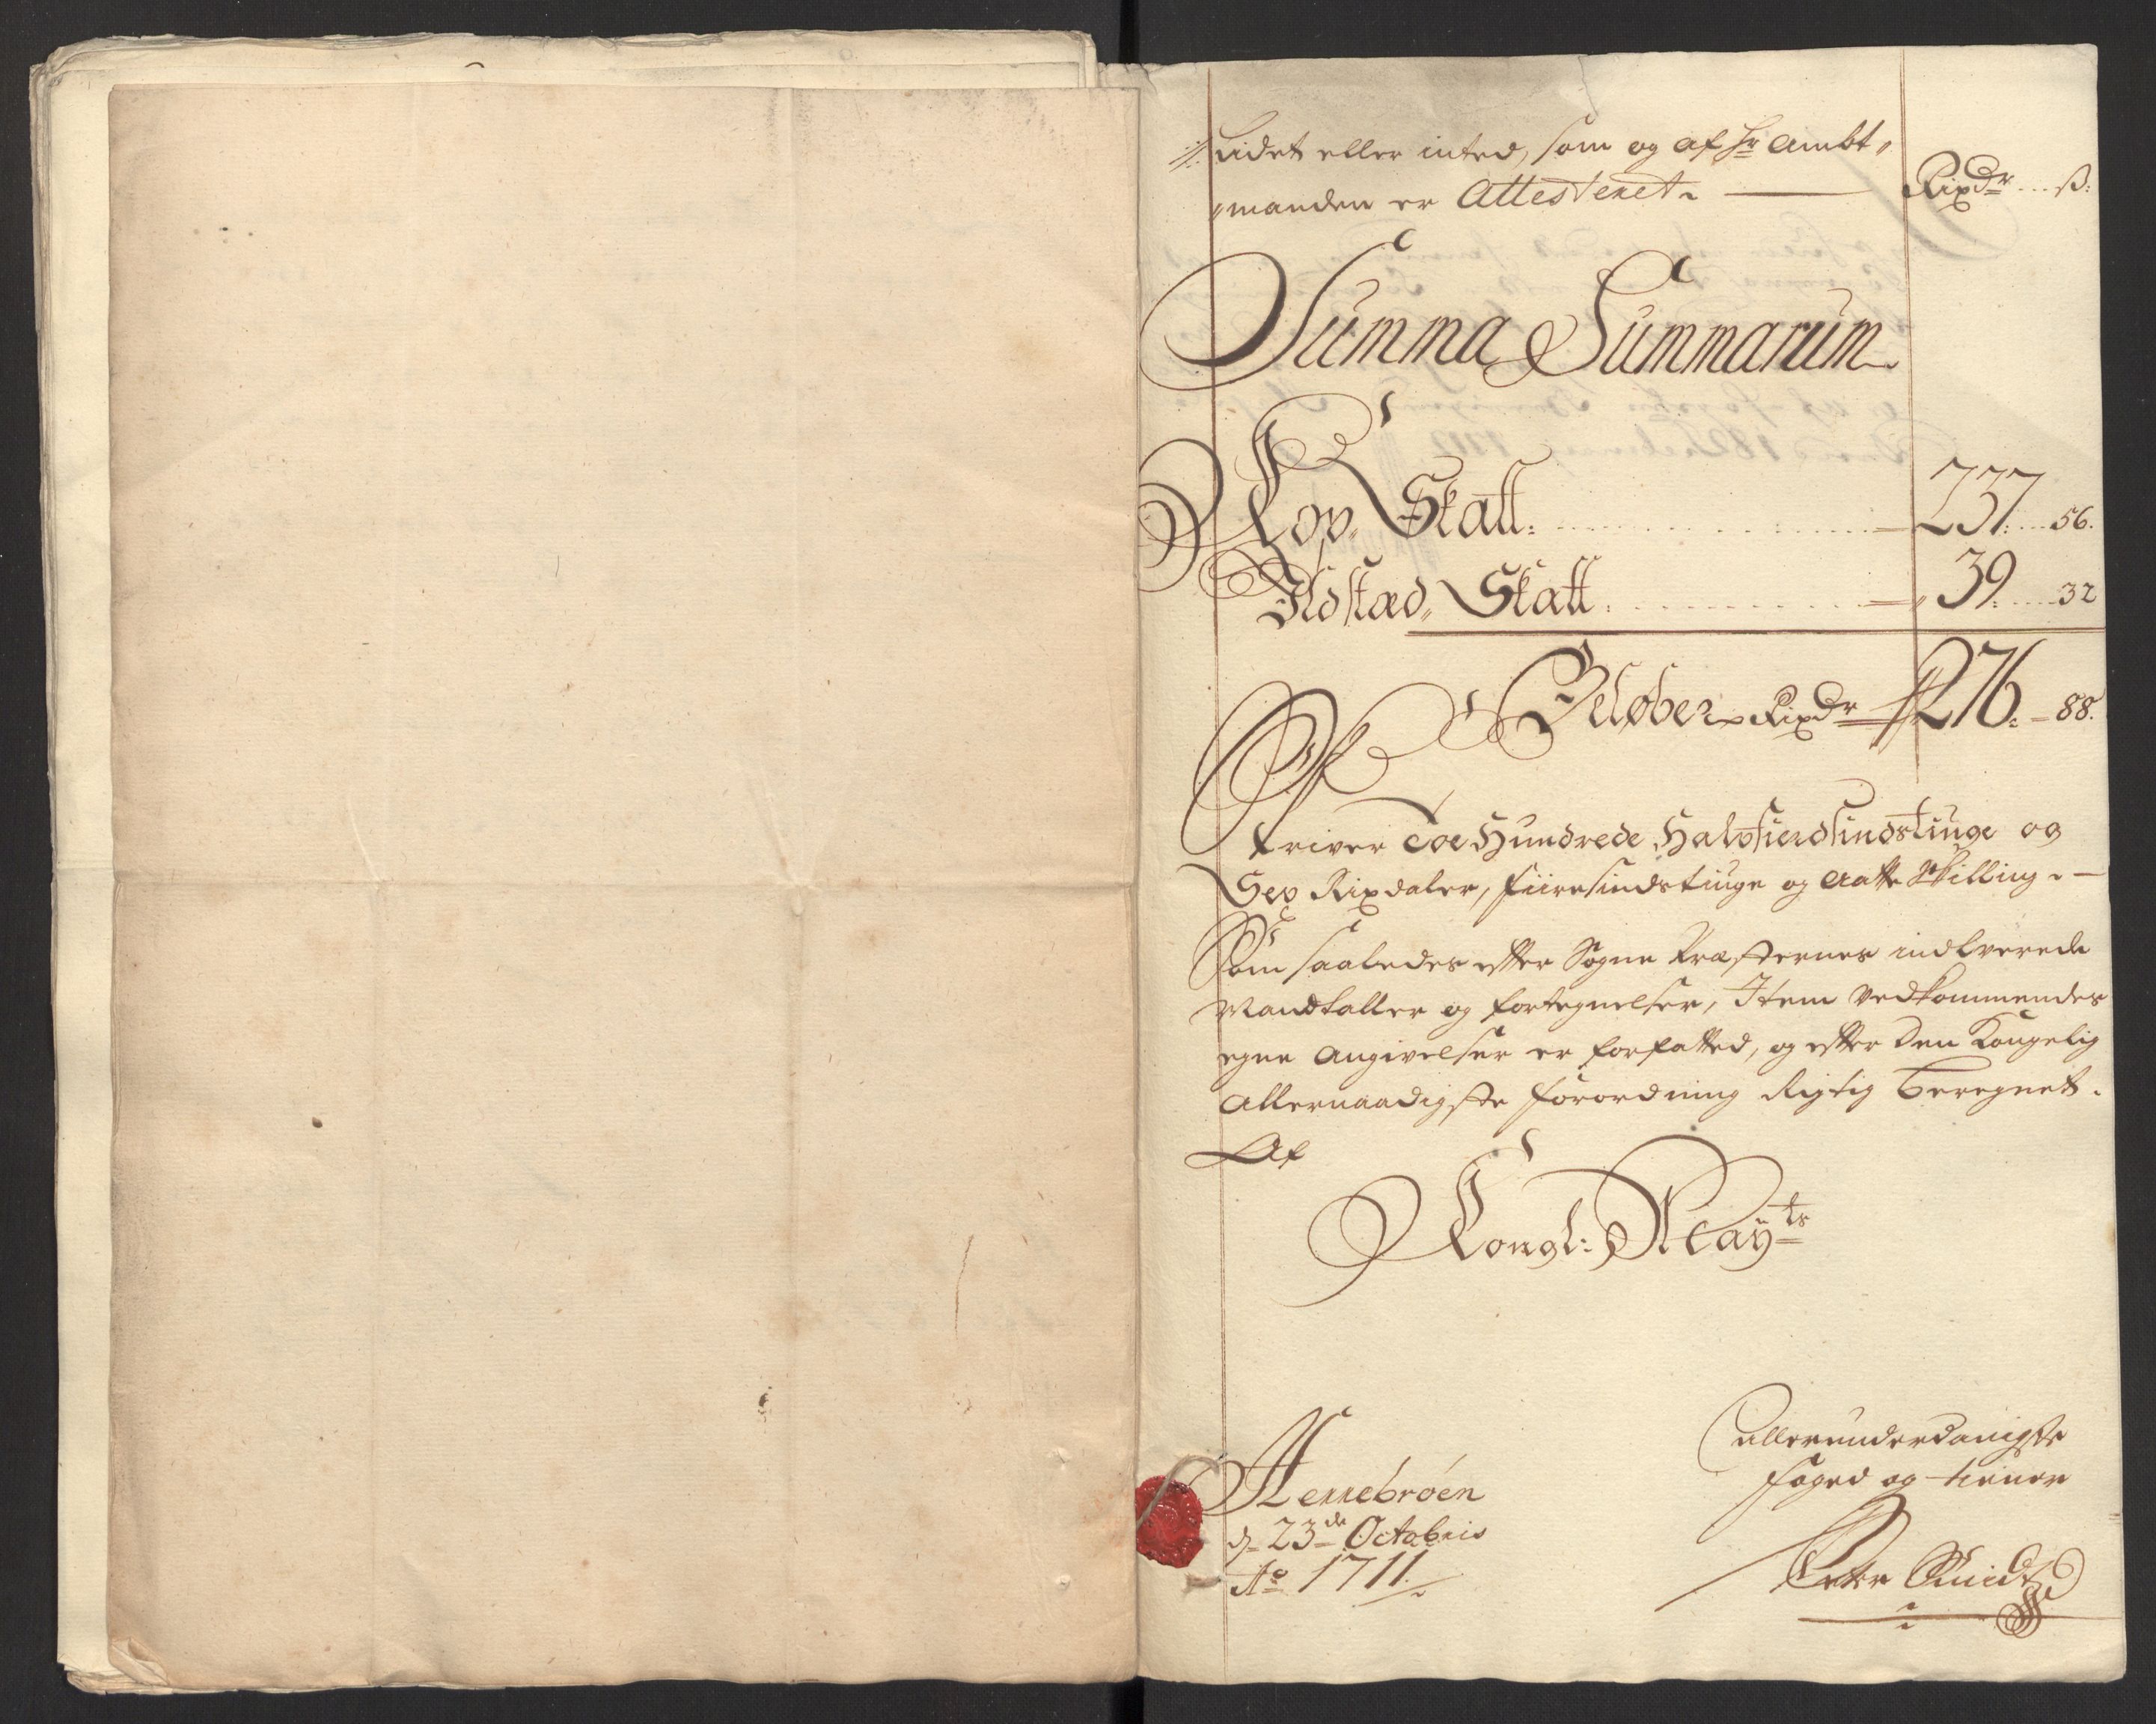 //: lidet eller inted, som og af Hr Ambt„
„manden er Attesteret. Rixdr ß:
Summa Summarum
Kop Skatt: 237: 56.
Ildstæd„ Skatt: 39: 32
Beløber Rixdr 276: 88.
Skriver Toe Hundrede Halvfierdsindstiuge og
Sex Rixdaler, fiiresindstiuge og Aatte Skilling.
Som saaledes efter Sogne Præsternes indleverede
Mandtaller og fortegnelser, Item Vedkommendes
egne Angivelser er forfatted, og efter Den Kongelig
Allernaadigste forordning Rigtig beregnet.
Af
Kongl: Mayts
Allerunderdanigste
foged og tiener
Nennebrøen
d. 23de Octobris
Ao 1711.
Peter